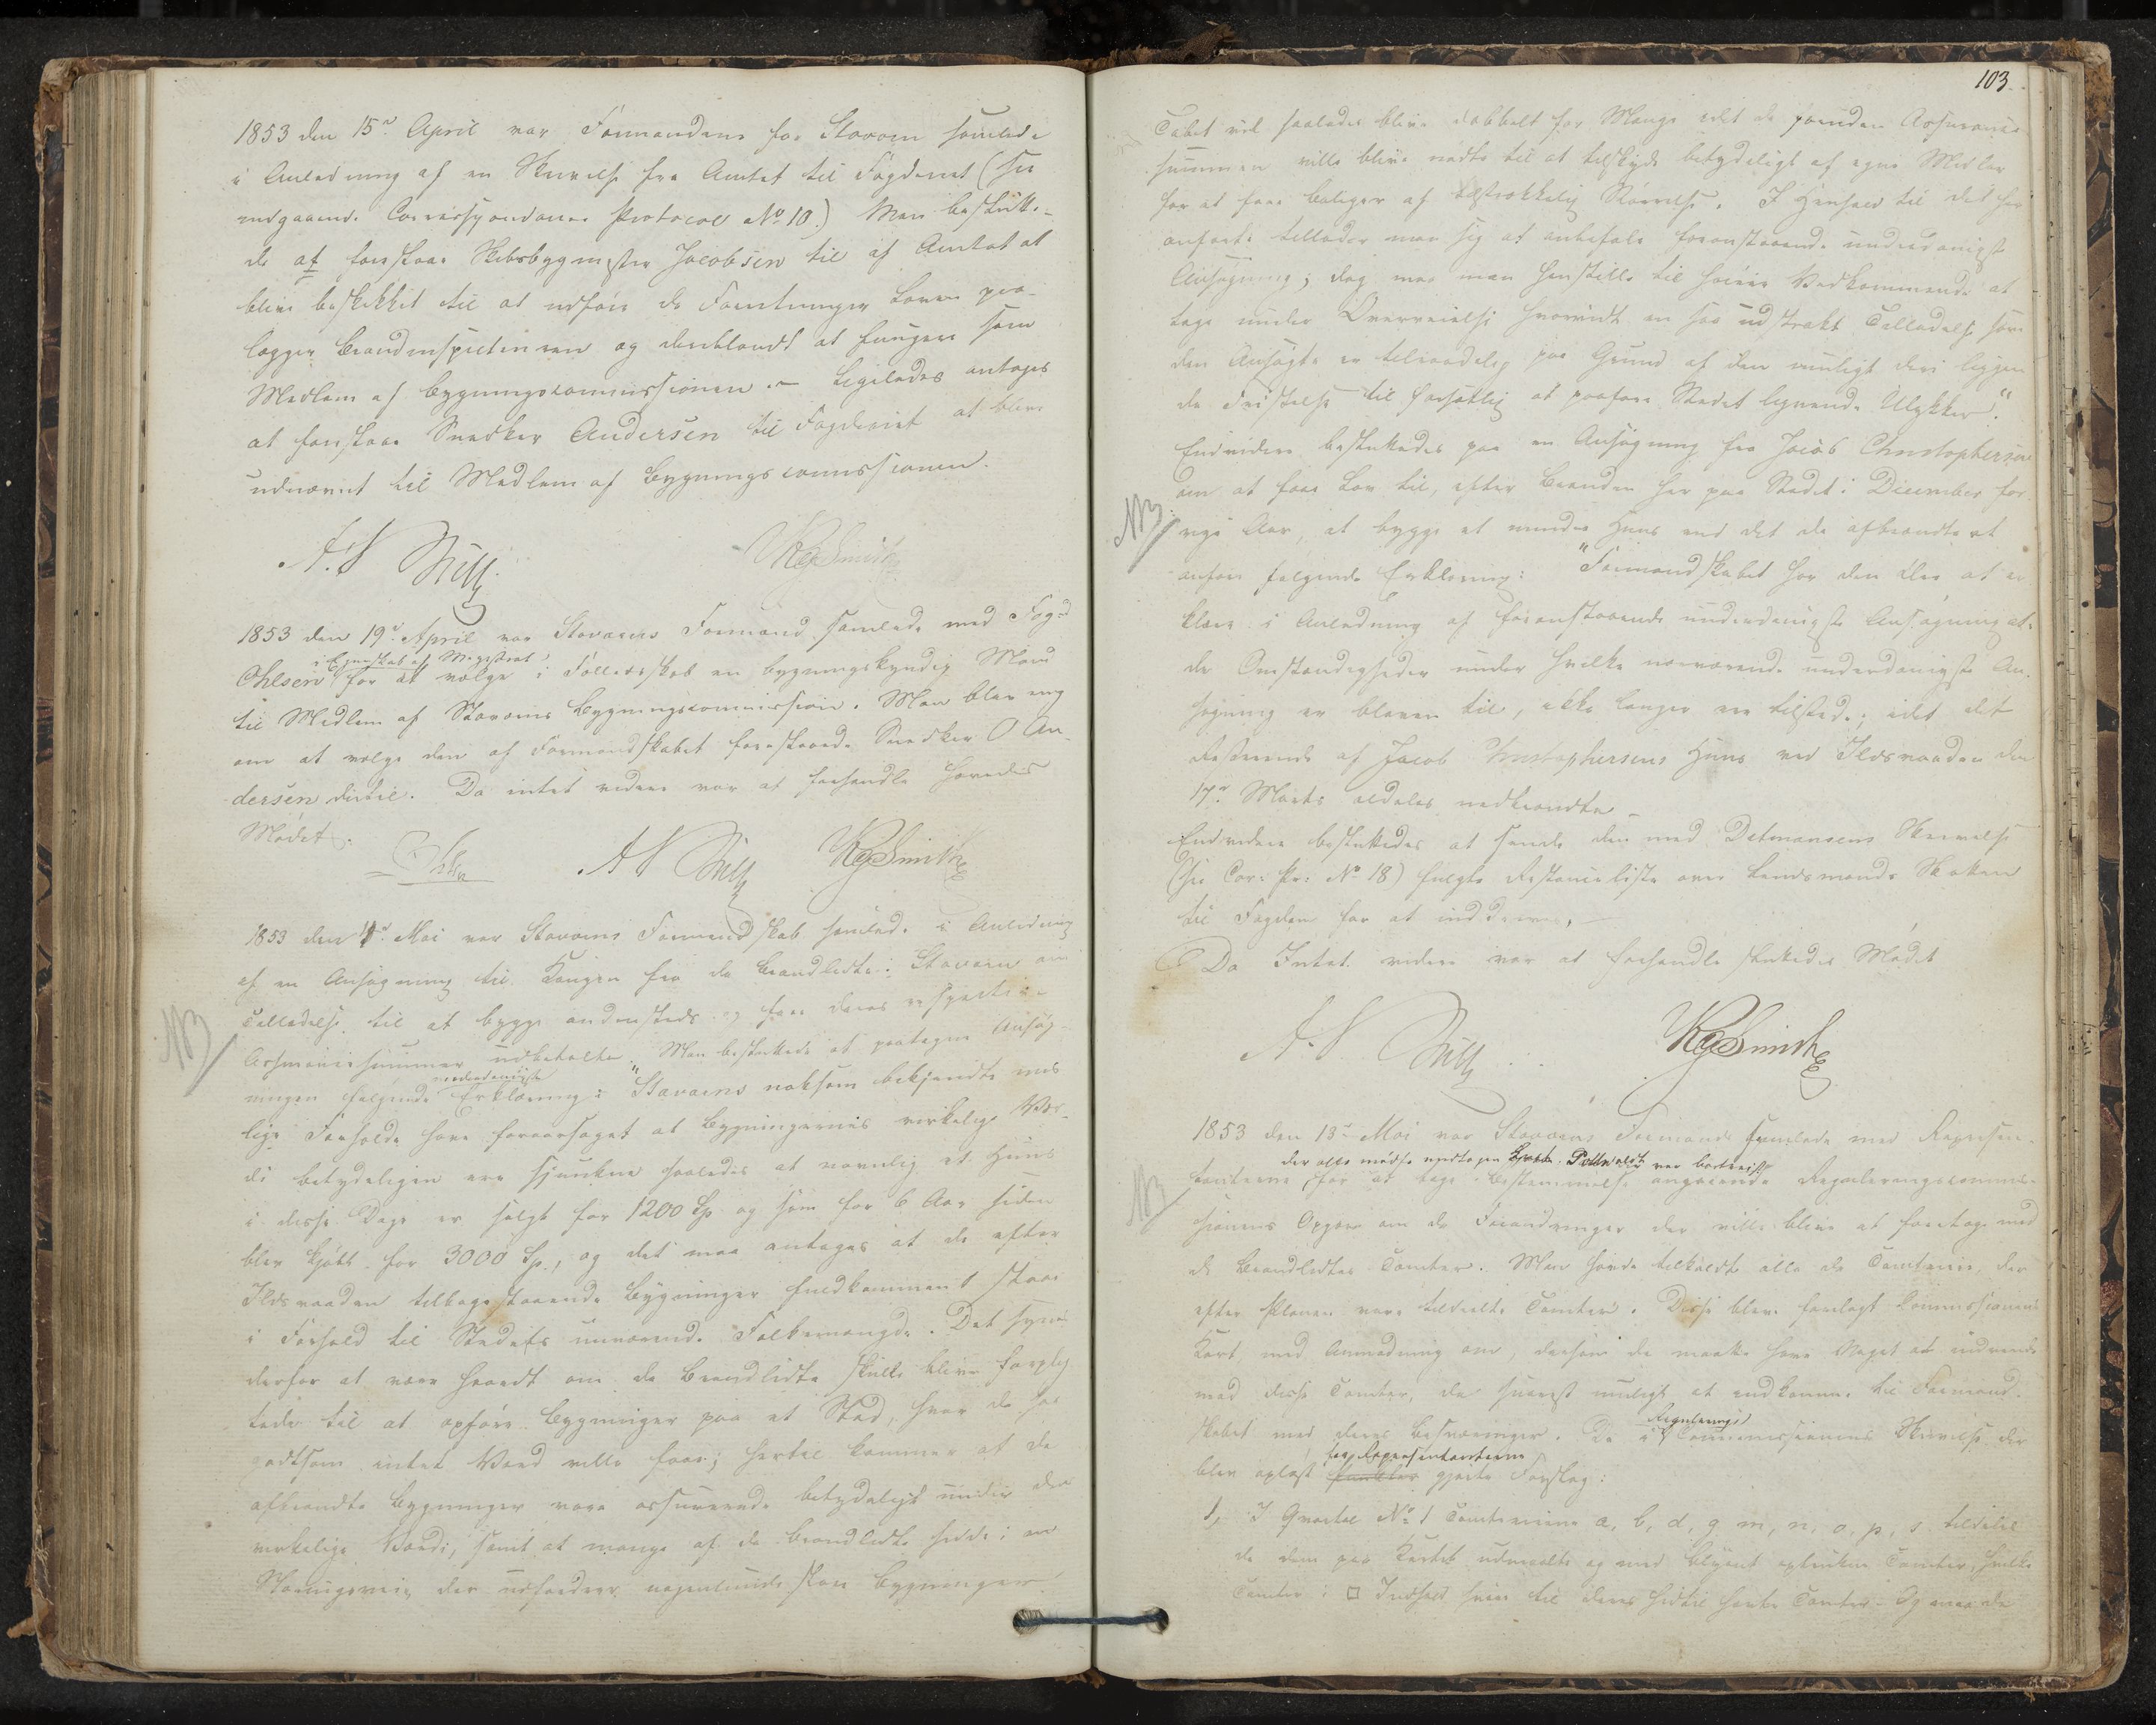 1853 den 15de April var Formændene for Stavern samlede
i Anledning af en Skrivelse fra Amtet til Fogderiet (see
indgaaende Correspondance Protocol No 10.) Man beslutte-
de at foreslaae Skibsbygmester Jacobsen til af Amtet at
blive beskikket til at udføre de Forretninger Loven paa-
lægger Brandinspecteuren og deriblandt at fungere som
Medlem af Bygningscommissionen. – Ligeledes antoges
at foreslaae Snedker Andersen til Fogderiet at blive
udnævnt til Medlem af Bygningscommissionen.
A. S.       Smith
1853 den 19de April var Staværns Formænd samlede med Fogd
i Egenskab af Magistrat
Ohlsen for at vælge i Fælledsskab en bygningskyndig Mand
til Medlem af Staværns Bygningscommission. Man blev enig
om at vælge den af Formandskabet foreslaaede Snedker O An-
dersen dertil. Da intet videre var at forhandle hævedes
Mødet.
A S       Smith
1853 den 1de Mai var Staværns Formandskab samlede i Anledning
af en Ansøgning til Kongen fra de Brandlidte i Stavern om
Tilladelse til at bygge andensteds og faae deres respective
NB
Assurancesummer udbetalte. Man besluttede at paategne Ansøg-
underdanigste
ningen følgende Erklæring: "Staværns noksom bekjendte uhel-
lige Forholde have foraarsaget at Bygningernes virkelige Vær-
di betydeligen ere sjunkne saaledes at navnlig et Huus
i disse Dage er solgt for 1200 Sp og som for 6 Aar siden
blev kjøbt for 3000 Sp., og det maa antages at de efter
Ildsvaaden tilbagestaaende Bygninger fuldkomment staae
i Forhold til Stedets nuværende Folkemængde. Det synes
derfor at være haardt om de Brandlidte skulle blive forplig-
tede til at opføre Bygninger paa et Sted, hvor de saa
godtsom intet Værd ville faae; hertil kommer at de
afbrændte Bygninger vare assurerede betydeligt under den
virkelige Værdi, samt at mange af de Brandlidte sidde i en
Næringsvei, der udfordrer nogenlunde store Bygninger
103
Tabet vil saaledes blive dobbelt for Mange idet de foruden Assurance
summen ville blive nødte til at tilskyde betydeligt af egne Midler
for at faae Boliger af tilstrækkelig Størrelse. I Henhold til det her
anførte tillader man sig at anbefale foranstaaende underdanigste
Ansøgning; dog maa man henstille til høiere Vedkommende at
tage under Overveielse hvorvidt en saa udstrakt Tilladelse som
den Ansøgte er tilraadelig paa Grund af den muligt deri liggen-
de Fristelse til forsætlig at paaføre Stedet lignende Ulykker."
Endvidere besluttedes paa en Ansøgning fra Jacob Christophersen
om at faae Lov til, efter Branden her paa Stedet i December for-
NB
rige Aar, at bygge et mindre Huus end det de afbrændte at
anføre følgende Erklæring: "Formandskabet har den Ære at er-
klære i Anledning af foranstaaende underdanigste Ansøgning at
de Omstændigheder under hvilke nærværende underdanigste An-
søgning er bleven til, ikke længer ere tilstede; idet det
Resterende af Jacob Christophersens Huus ved Ildsvaaden den
17de Marts aldeles nedbrændte –
Endvidere besluttedes at sende den med Ditmansens Skrivelse
(see Cor: Pr: No 18) fulgte Restanceliste over Lendsmands Skatten
til Fogden for at inddrives. –
Da Intet videre var at forhandle sluttedes Mødet
A. S.       Smith
1853 den 13de Mai var Staværns Formænd samlede med Repræsen-
der alle mødte undtagen var bortreist
NB
tanterne, for at tage Bestemmelse angaaende Reguleringscommis-
sionens Opgave om de Forandringer der ville blive at foretage med
de Brandlidtes Tomter. Man havde tilkaldt alle de Tomteeiere, der
efter Planen vare tildeelte Tomter. Disse blev forelagt Commissionens
Kort med Anmodning om, dersom de maatte have Noget at indvende
mod disse Tomter, da snarest muligt at indkomme til Formand-
skabet med deres Besværinger. Da i Regulerings
Commissionens Skrivelse der
af Repræsentanterne
blev oplæst gjorte Forslag:
1, I Qvartal No 1 Tomteeierne a, b, d, g, m, n, o, p, s tildeles
de dem paa Kartet udmaalte og med Blyant optrukne Tomter, hvilke
Tomter i □ Indhold svare til deres hidtil havte Tomter – Og maa de